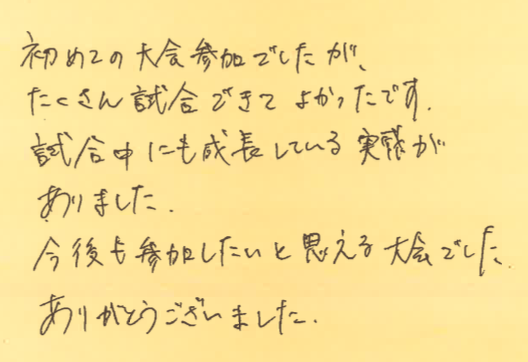 初めての大会参加でしたが、
たくさん試合できてよかったです.
試合中にも成長している実感が
ありました.
今後も参加したいと思える大会でした.
ありがとうございました.